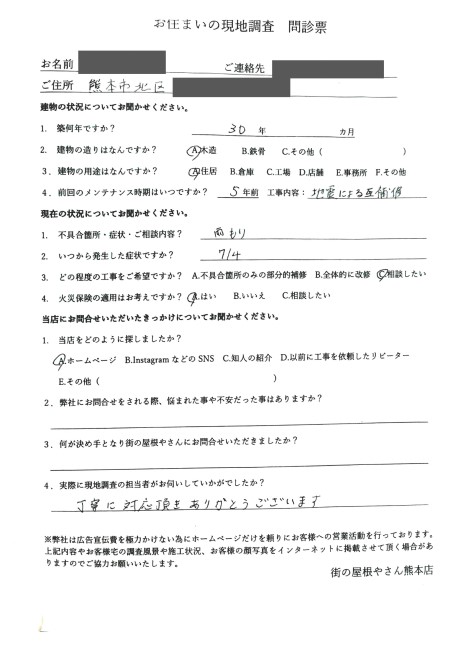 お住まいの現地調査　問診票
お名前
ご連絡先
ご住所 熊本市北区
建物の状況についてお聞かせください。
1. 築何年ですか？ 30 年 カ月
2. 建物の造りはなんですか？ A.木造 B.鉄骨 C.その他（ ）
3. 建物の用途はなんですか？ A.住居 B.倉庫 C.工場 D.店舗 E.事務所 F.その他
4. 前回のメンテナンス時期はいつですか？ 5 年前 工事内容: 地震による瓦補修
現在の状況についてお聞かせください。
1. 不具合箇所・症状・ご相談内容？ 雨もり
2. いつから発生した症状ですか？ 7/4
3. どの程度の工事をご希望ですか？ A.不具合箇所のみの部分的補修 B.全体的に改修 C.相談したい
4. 火災保険の適用はお考えですか？ A.はい B.いいえ C.相談したい
当店にお問合せいただいたきっかけについてお聞かせください。
1. 当店をどのように探しましたか？
A.ホームページ B.Instagram などの SNS C.知人の紹介 D.以前に工事を依頼したリピーター
E.その他（ ）
2. 弊社にお問合せをされる際、悩まれた事や不安だった事はありますか？
3. 何が決め手となり街の屋根やさんにお問合せいただきましたか？
4. 実際に現地調査の担当者がお伺いしていかがでしたか？
丁寧に対応頂きありがとうございます
※弊社は広告宣伝費を極力かけない為にホームページだけを頼りにお客様への営業活動を行っております。
上記内容やお客様宅の調査風景や施工状況、お客様の顔写真をインターネットに掲載させて頂く場合があ
りますのでご協力お願いいたします。
街の屋根やさん熊本店